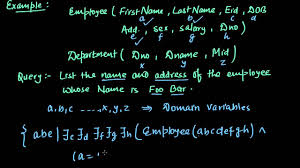 Example:
Employee (First Name, Last Name, Eid, DOB
a b c d
Add, sex, salary, Dno)
e f g h
Department (Dno, Dname, Mid)
x y z
Query:- List the name and address of the employee
whose Name is Foo Bar.
a,b,c ...., x,y,z ⇒ Domain Variables
{ abe | ∃c ∃d ∃f ∃g ∃h (Employee(abcdefgh) ∧
(a = '